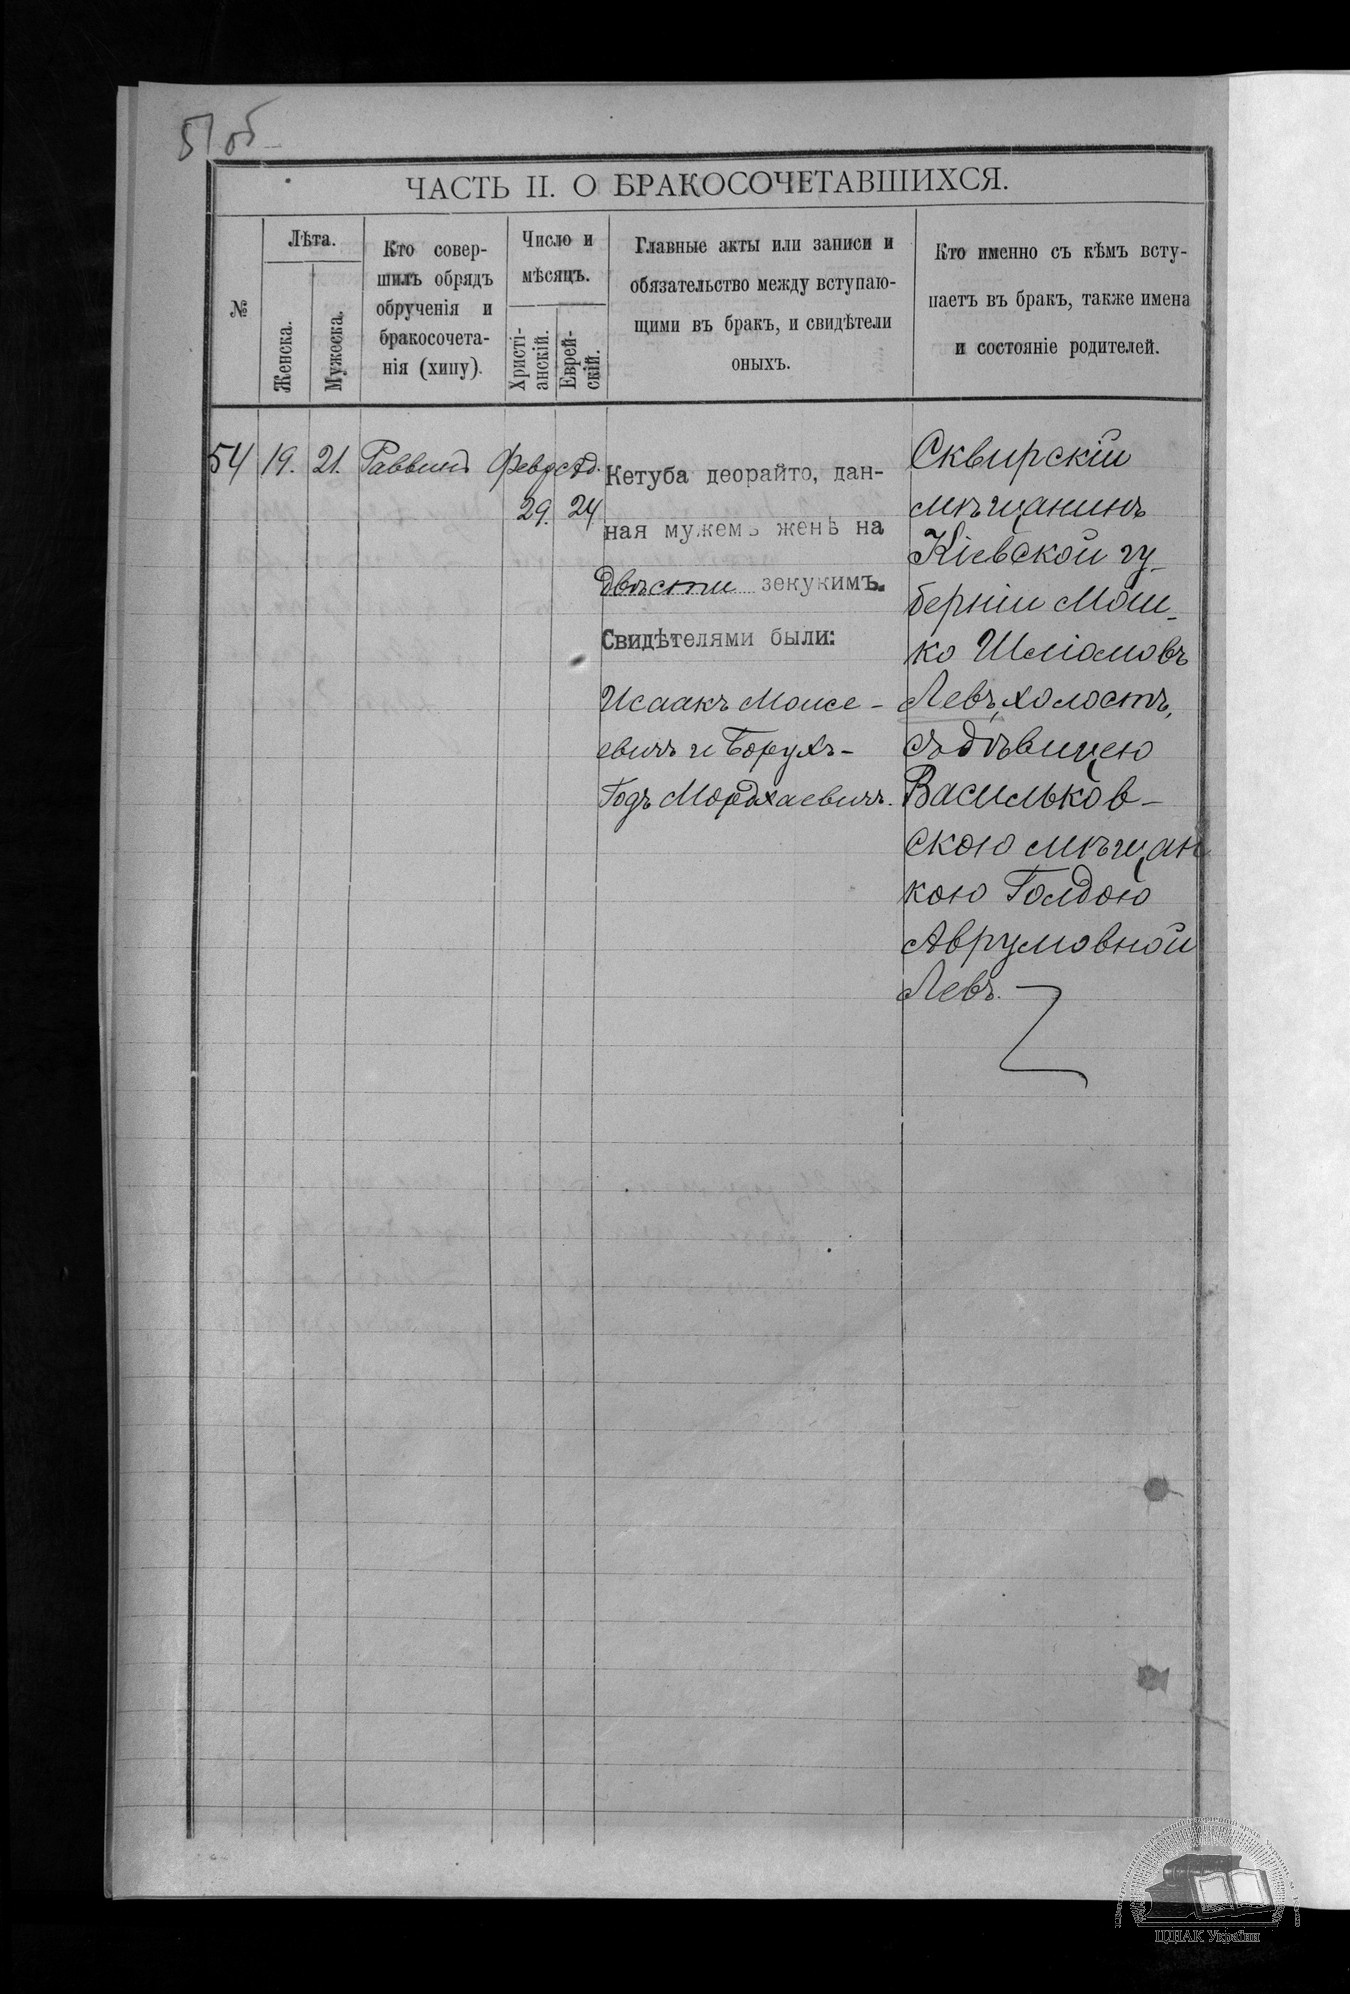 51 об
ЧАСТЬ II. О БРАКОСОЧЕТАВШИХСЯ.
№
Лѣта.
Женска.
Мужеска.
Кто совер-
шилъ обрядъ
обрученія и
бракосочета-
нія (хипу).
Число и
мѣсяцъ.
Христі-
анскій.
Еврей-
скій.
Главные акты или записи и
обязательство между вступаю-
щими въ бракъ, и свидѣтели
оныхъ.
Кто именно съ кѣмъ всту-
паетъ въ бракъ, также имена
и состояніе родителей.
54 19. 21. Раввинъ Февр. Ад.
29. 24
Кетуба деорайто, дан-
ная мужемъ женѣ на
двѣсти зекукимъ.
Свидѣтелями были:
Исаакъ Моисе-
евичъ и Борухъ-
Годъ Мордхаевичъ.
Сквирскій
мѣщанинъ
Кіевской гу-
берніи Мош-
ко Шліомовъ
Левъ, холостъ,
съ дѣвицею
Васильков-
скою мѣщан
кою Голдою
Аврумовной
Левъ.
ЦДІАК України